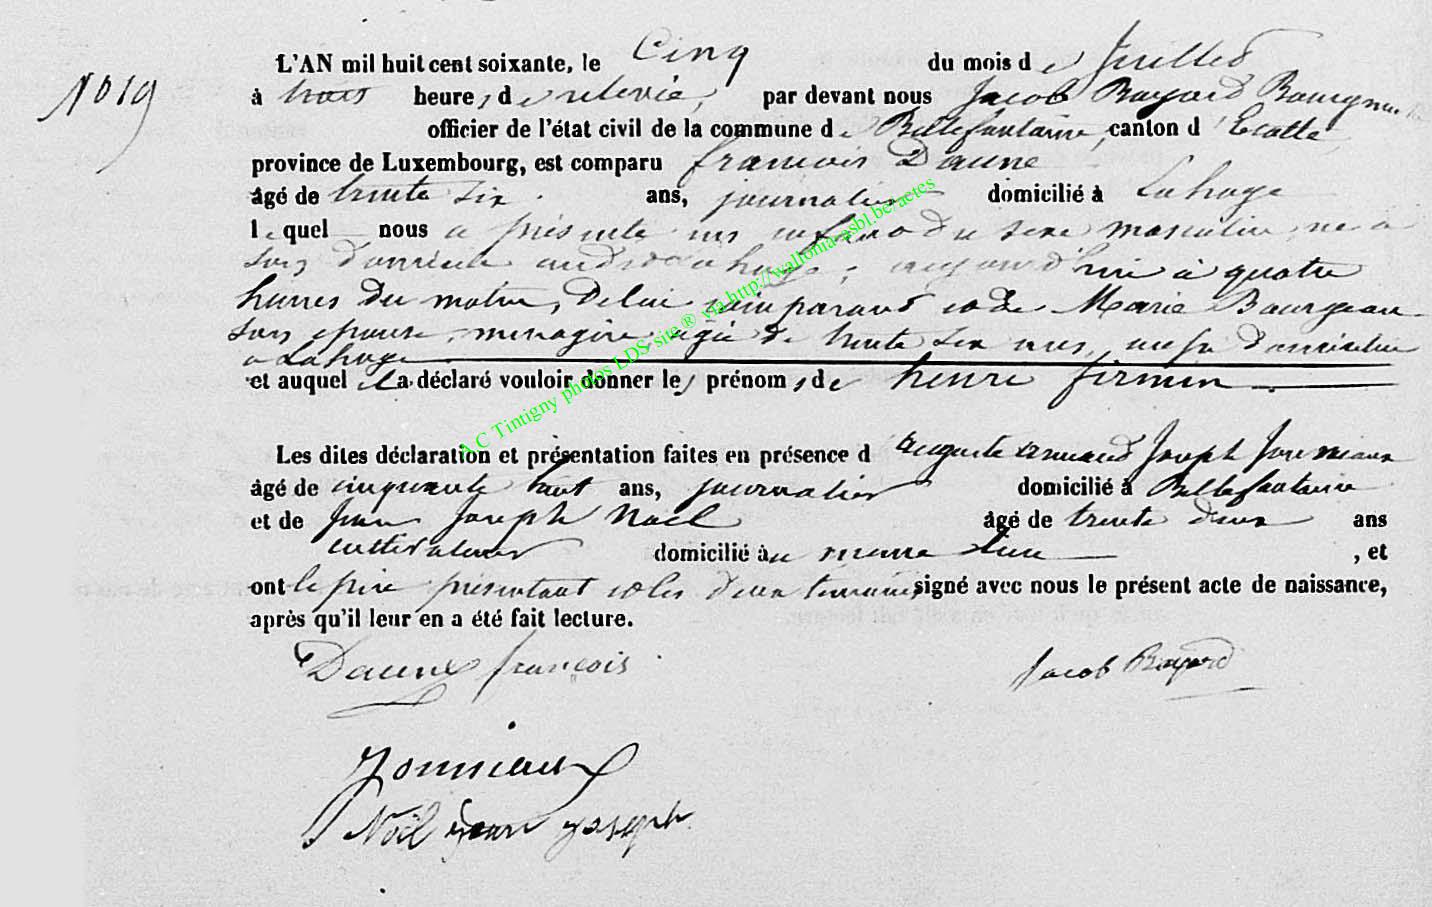 N° 19
L'AN mil huit cent soixante, le Cinq du mois de Juillet
à trois heures, de relevée, par devant nous Jacob Bayard Bourgmestre
officier de l'état civil de la commune de Bellefontaine, canton d'Etalle
province de Luxembourg, est comparu françois Daune
âgé de trente six ans, journalier domicilié à Lahage
lequel nous a présenté un enfant du sexe masculin, né à
son domicile audit Lahage, aujourd'hui à quatre
heures du matin, de lui comparant et de Marie Bourgeau
son épouse, ménagère, agée de trente six ans, aussi domiciliée
a Lahage
et auquel il a déclaré vouloir donner les prénoms, de henri firmin
Les dites déclaration et présentation faites en présence d'auguste armand Joseph Jonniaux
âgé de cinquante ans, journalier domicilié à Bellefontaine
et de Jean Joseph Noël âgé de trente deux ans
cultivateur domicilié au meme lieu, et
ont le père présentant et les deux temoins, signé avec nous le présent acte de naissance,
après qu'il leur en a été fait lecture.
Daune françois
Jacob Bayard
Jonniaux
Noël jean joseph
A.C Tintigny photos LDS-site ® via http://wallonia-asbl.be/actes